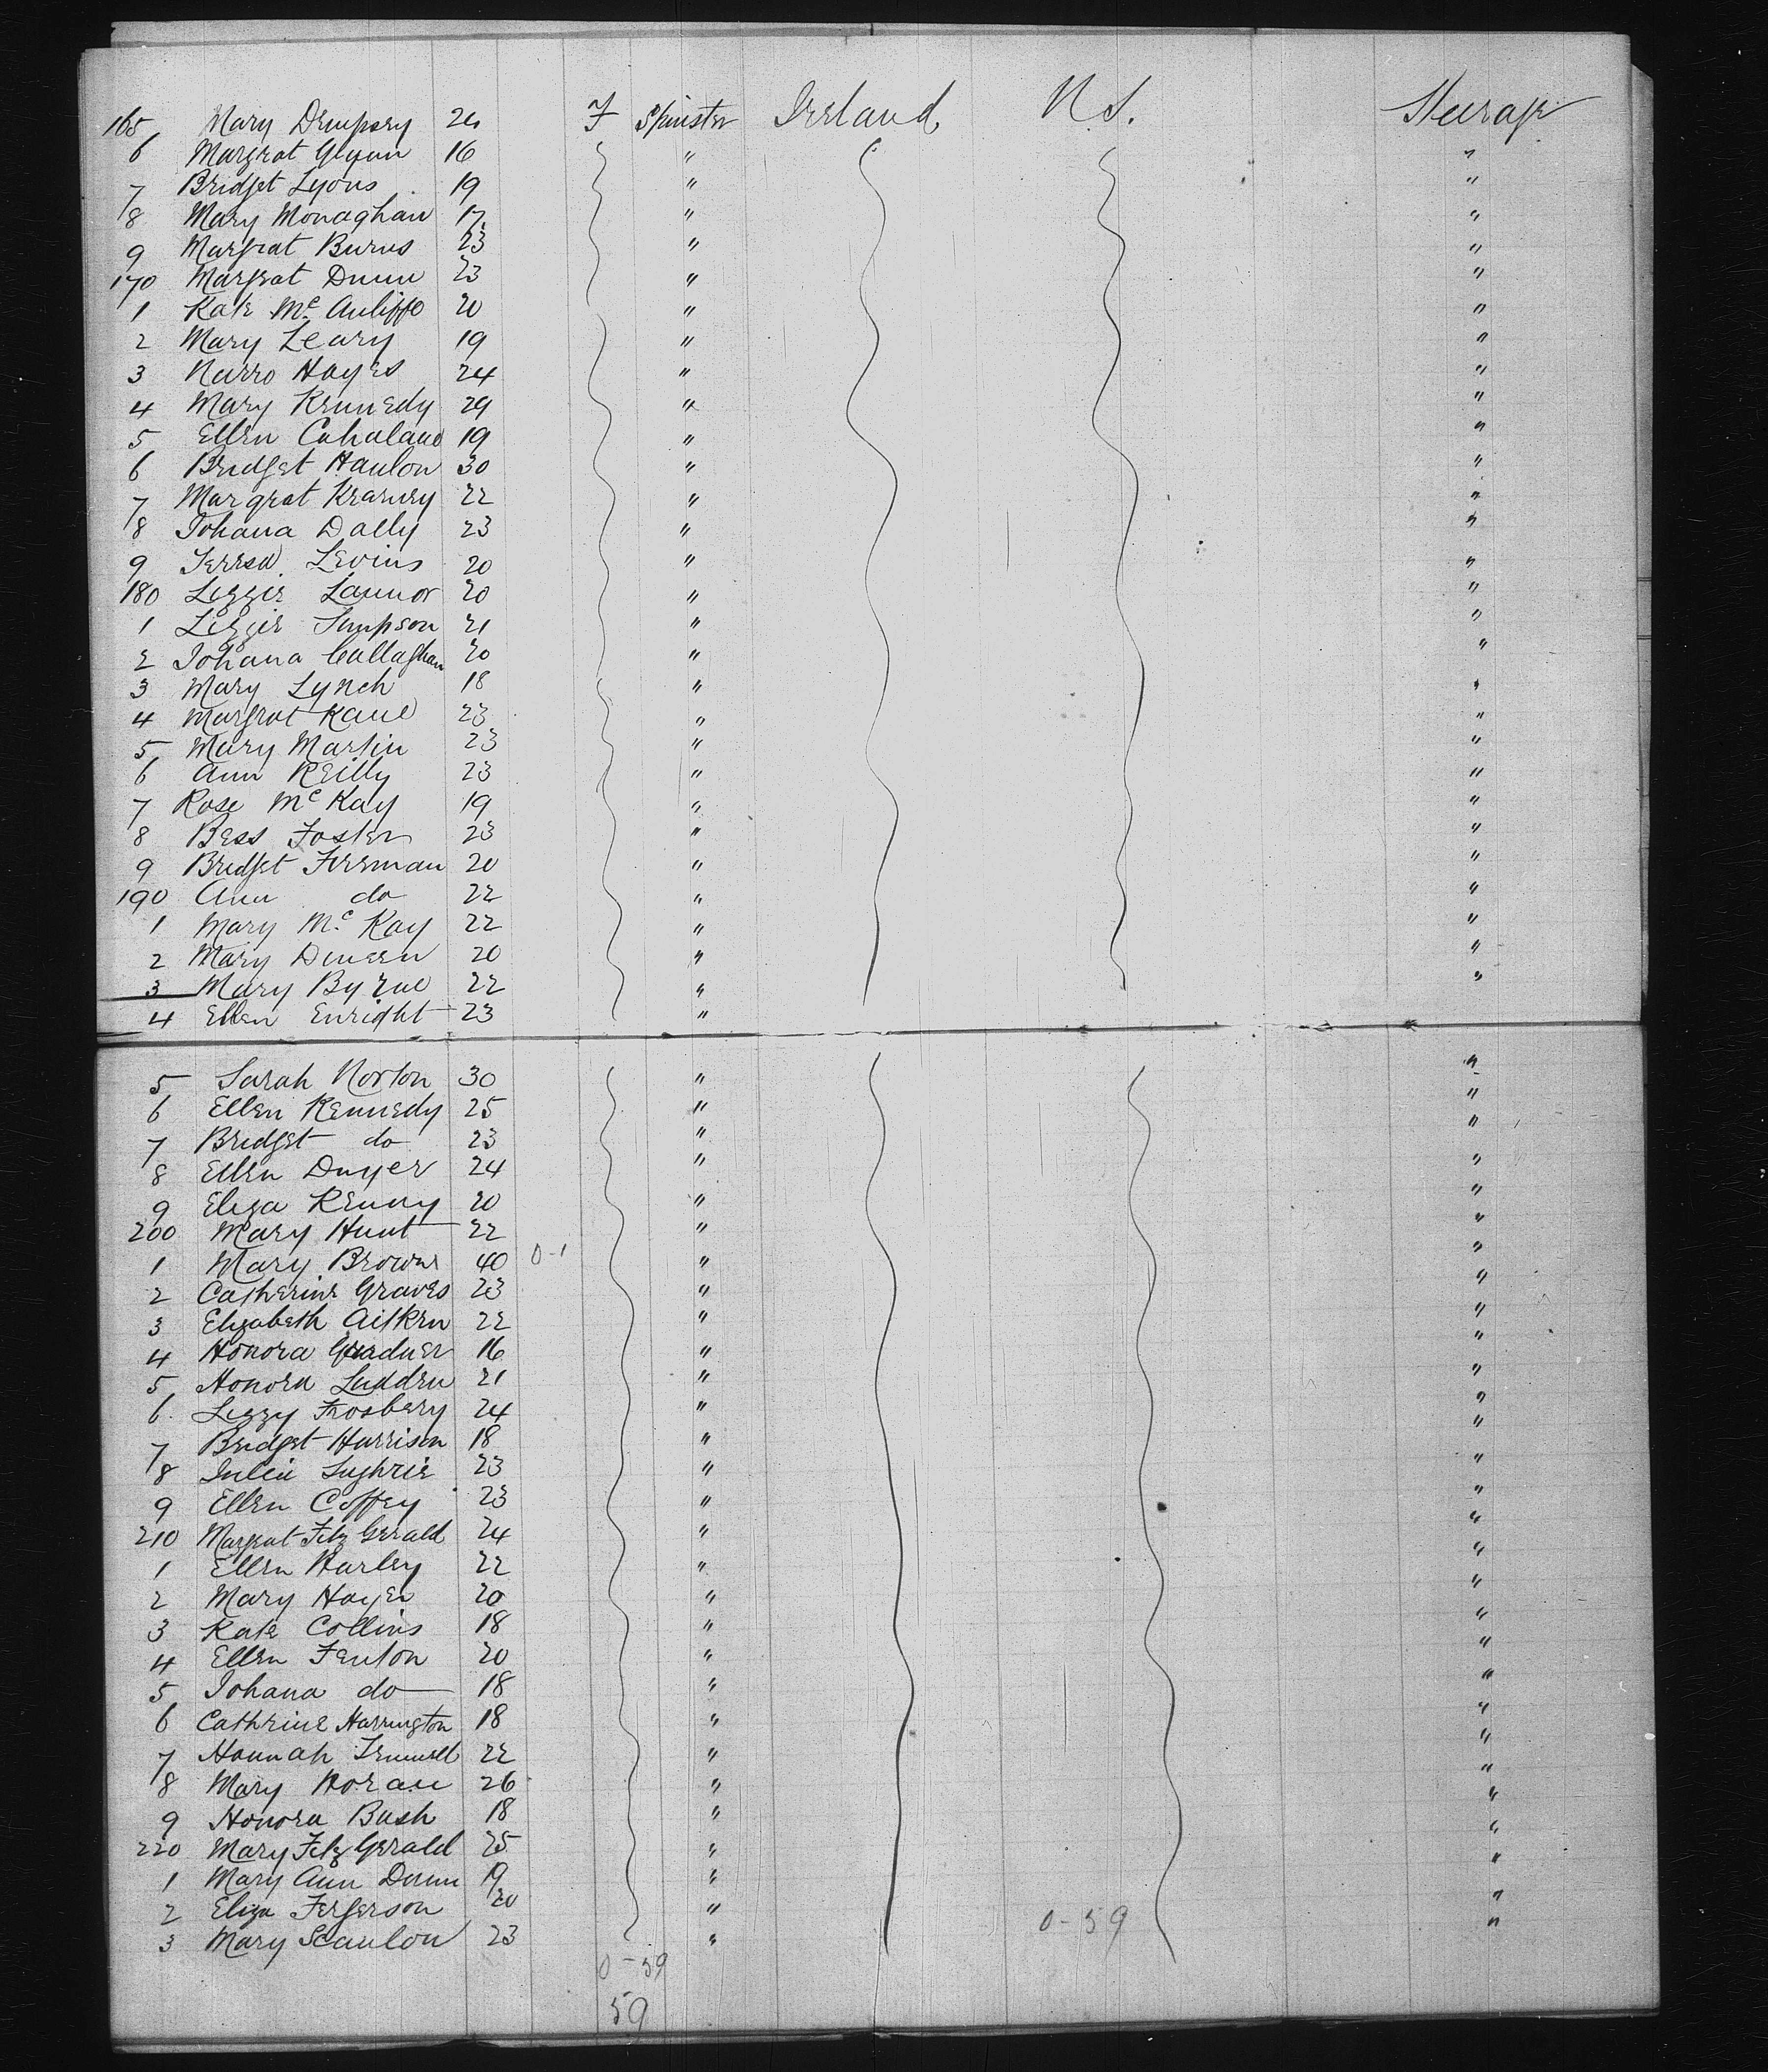 165 Mary Dempsey 24 F Spinster Ireland U S. Steerage
6 Margrat Glynn 16 " "
7 Bridget Lyons 19 " "
8 Mary Monaghan 17 " "
9 Margrat Burns 23 " "
170 Margrat Dunn 23 " "
1 Kate Mc Auliffe 20 " "
2 Mary Leary 19 " "
3 Hayes 24 " "
4 Mary Kennedy 29 " "
5 Ellen Cahalane 19 " "
6 Bridget Hanlon 30 " "
7 Margrat Kearney 22 " "
8 Johana Dally 23 " "
9 Terresa Levins 20 " "
180 Lizzie Lannor 20 " "
1 Lizzie Simpson 21 " "
2 Johana Callaghan 20 " "
3 Mary Lynch 18 " "
4 Margrat Kane 23 " "
5 Mary Martin 23 " "
6 Ann Reilly 23 " "
7 Rose Mc Kay 19 " "
8 Bess Foster 23 " "
9 Bridget Freeman 20 " "
190 Ann do 22 " "
1 Mary Mc Kay 22 " "
2 Mary Dineen 20 " "
3 Mary Byrne 22 " "
4 Ellen Enright 23 "
5 Sarah Norton 30 " "
6 Ellen Kennedy 25 " "
7 Bridget do 23 " "
8 Ellen Dwyer 24 " "
9 Eliza Kenny 20 " "
200 Mary Hunt 22 " "
1 Mary Browne 40 0-1 " "
2 Catherine Graves 23 " "
3 Elizabeth Aitken 22 " "
4 Honora Gardner 16 " "
5 Honora Ludden 21 " "
6 Lizzy Frosbery 24 " "
7 Bridget Harrison 18 " "
8 Julia 23 " "
9 Ellen Coffey 23 " "
210 Margrat Fitz Gerald 24 " "
1 Ellen Hurley 22 " "
2 Mary Hayes 20 " "
3 Kate Collins 18 " "
4 Ellen Fenton 20 " "
5 Johana do 18 " "
6 Cathrine Harrington 18 " "
7 Hannah 22 " "
8 Mary Horan 26 " "
9 Honora Bush 18 " "
220 Mary Fitz Gerald 25 " "
1 Mary Ann Dunn 19 " "
2 Eliza Fergerson 20 " "
3 Mary Scanlon 23 " 0-59 "
0-59
59